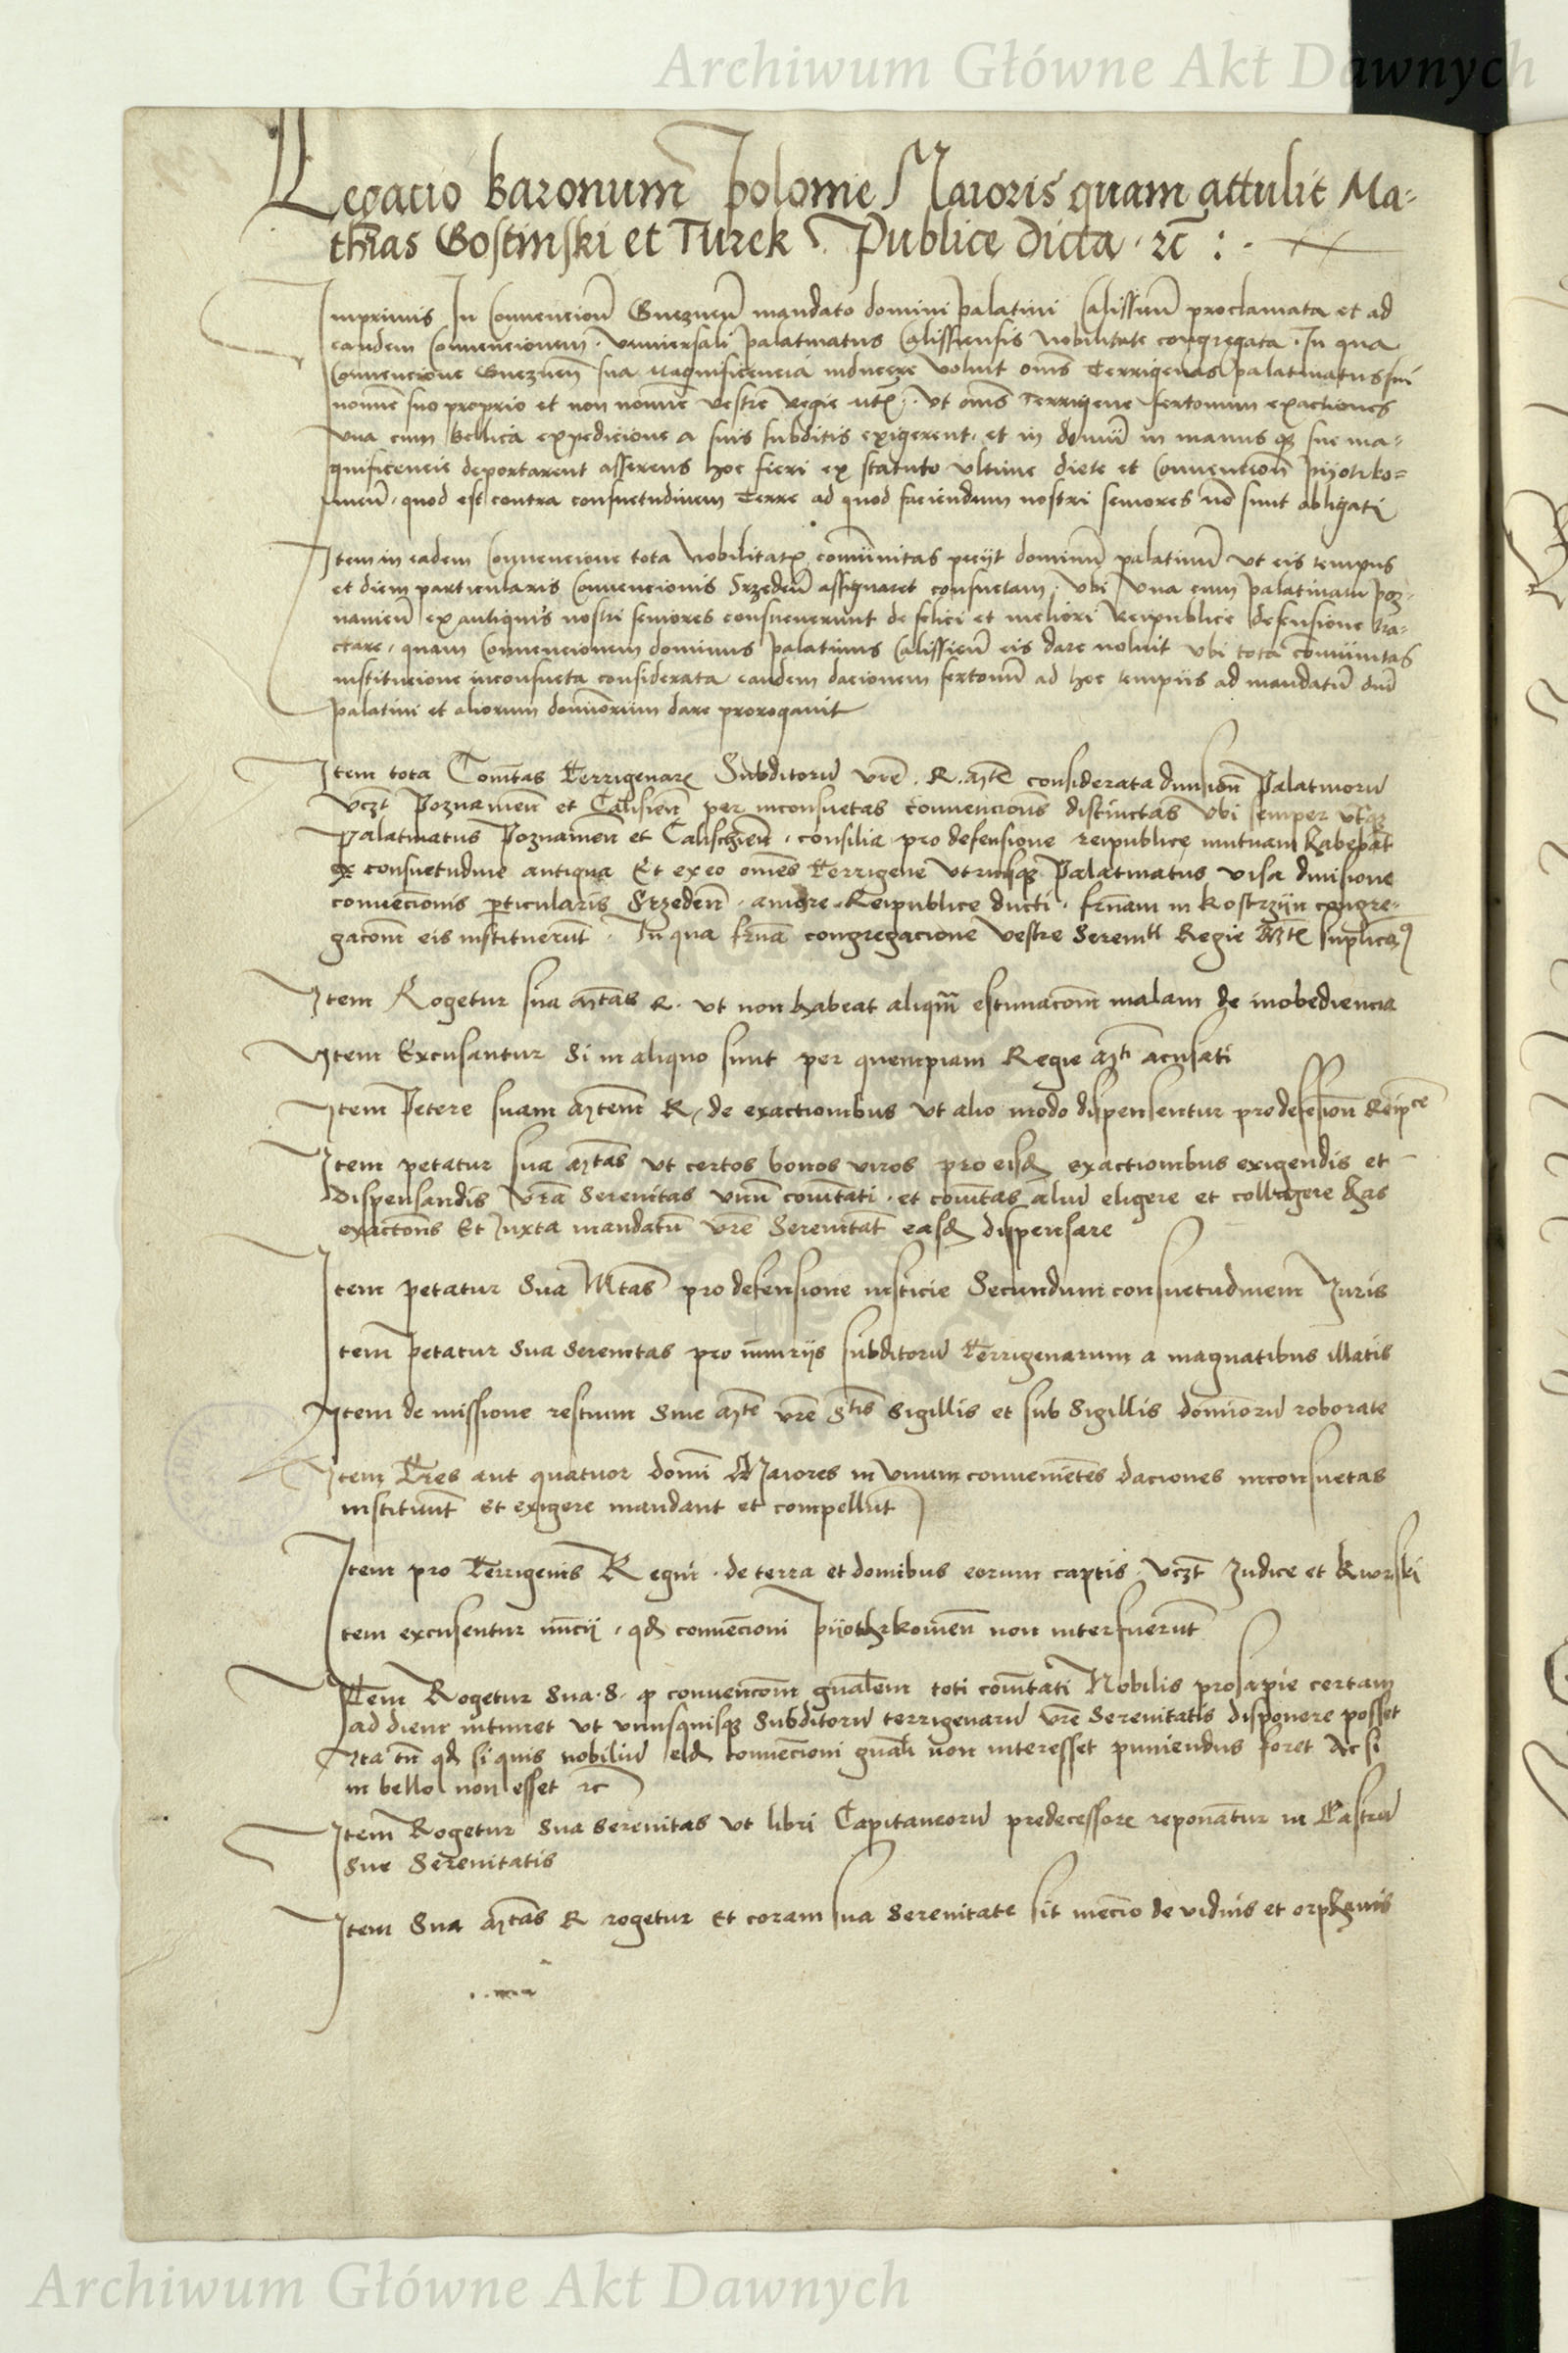 Archiwum Główne Akt Dawnych
Legacio Baronum Polonie Maioris quam attulit Ma-
thias Gostinski et Turek Publice dicta · rc̄ : ·
Inprimis In Convencioñ Gnezneñ mandato domini palatini Calissieñ proclamata et ad
eandem Convencionem · Vniversali palatinatus Calissiensis Nobilitate congregata · In qua
Convencione Gnezneñ sua Magnificencia inducere voluit om̄s Terrigenas palatinatus sui
nomine suo proprio et non nomine vestre Regie mt̄ · Vt om̄s Terrigene fertonum exactiones
vna cum bellica expedicione a suis subditis exigerent · et in domū in manus qz sue ma-
gnificencie deportarent asserens hoc fieri ex statuto vltime diete et Convencioñ pijotrko-
uieñ · quod est contra consuetudinem Terre ad quod faciendum nostri seniores nō sunt obligati
Item in eadem Convencione tota Nobilitatꝝ comūnitas peciit dominū palatinū vt eis tempus
et diem particularis Convencionis Srzedeñ assignaret consuetam · vbi vna cum palatinatu poz-
nanieñ ex antiquis nostri seniores consueuerunt de felici et meliori Reipublice defensione tra-
ctare · quam Convencionem dominus palatinus Calissieñ eis dare noluit vbi tota comūnitas
institucione inconsueta considerata eandem dacionem fertonū ad hoc tempus ad mandatū dnī
palatini et aliorum dominorum dare prorogauit
Item tota Com̄tas Terrigenarꝝ Subditorū vrē · R · mt̄e considerata diuisioñ Palatinorū
vczt̄ Poznanieñ et Calisieñ per inconsuetas convencioñs distinctas vbi semper vtqz
Palatinatus Poznanieñ et Calischieñ · consilia pro defensione reipublice mutuam habebāt
ex consuetudine antiqua Et ex eo om̄es Terrigene vtriusqz Palatinatus visa diuisione
convencionis particularis Srzedeñ · amore Reipublice ducti · frn̄am in Kostrzijn congre-
gacom̄ eis instituerūt · In qua frn̄a congregacione vestre Serenitt̄ Regie Mt̄ suplicaꝝ
Item Rogetur sua Mt̄as R · vt non habeat aliqm̄ estimacom̄ malam de inobediencia
Item Excusantur si in aliquo sunt per quempiam Regie Mt̄i acusati
Item Petere suam Mt̄em R · de exactionibus vt alio modo dispensentur pro defēsioñ Reipce
Item petatur sua Mt̄as vt certos bonos viros pro eisđ exactionibus exigendis et
dispensandis vrā Serenitas vnū com̄tati · et com̄tas aliū eligere et colligere has
exactoñs Et Iuxta mandatū vrē Serenitat̄ easđ dispensare
Item petatur Sua Mt̄as pro defensione iusticie Secundum consuetudinem Iuris
Item petatur sua Serenitas pro iniurijs subditorū Terrigenarum a magnatibus illatis
Item de missione restium sine Mt̄e vrē St̄is sigillis et sub sigillis dominorū roborate
Item Tres aut quatuor domī Maiores in vnum convenientes daciones inconsuetas
instituūt et exigere mandant et compellūt
Item pro Terrigenis Regni · de terra et domibus eorum captis · vczt̄ Iudice et Kworski
Item excusentur nūcij · qđ convencioni pijothrkouieñ non interfuerūt
Item Rogetur Sua · S · qz convencom̄ gnālem toti com̄tati Nobilis prosapie certam
ad diem intimet vt vnusquisqz Subditorū terrigenarū vrē Serenitatis disponere posset
Ita tn̄ qđ si quis nobiliū eiđ convencioni gnāli non interesset puniendus foret Ac si
in bello non esset rc̄
Item Rogetur Sua Serenitas vt libri Capitaneorū predecessorꝝ reponātur in Castrū
sue Serenitatis
Item Sua Mt̄as R rogetur Et coram sua Serenitate sit mēcio de viduis et orphanis
Archiwum Główne Akt Dawnych